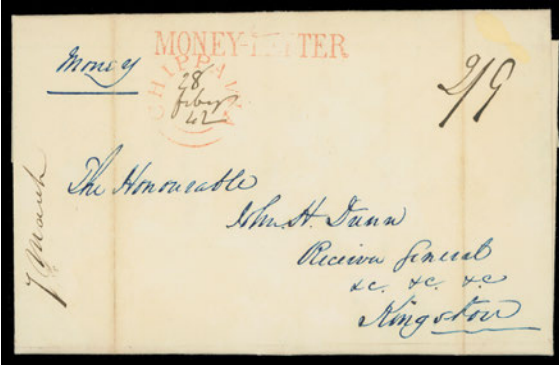 MONEY-LETTER
Money
CHIPPAWA
28
Feby
42
2/9
The Honourable
John. H. Dunn
Receiver General
&c. &c. &c
Kingston
7 March